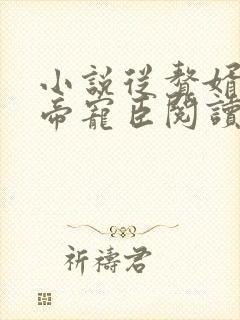 小說從贅婿
帝寵臣閱讀
祈禱君